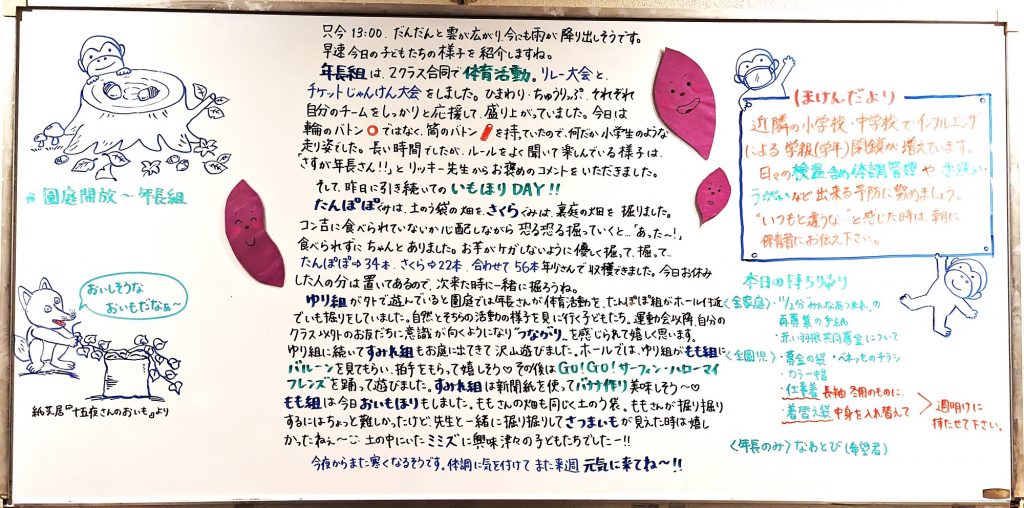 園庭開放〜年長組
おいしそうな
おいもだなぁ〜
紙芝居『十五夜さんのおいも』より
只今 13:00. だんだんと雲が広がり、今にも雨が降り出しそうです。
早速今日の子どもたちの様子を紹介しますね。
年長組は、2クラス合同で体育活動。リレー大会と、
チケットじゃんけん大会をしました。ひまわり・ちゅうりっぷ、それぞれ
自分のチームをしっかりと応援して、盛り上がっていました。今日は
輪のバトン ではなく、筒のバトン を持っていたので、何だか小学生のような
走り姿でした。長い時間でしたが、ルールをよく聞いて楽しんでいる様子は、
「さすが年長さん!!」とリッキー先生からお褒めのコメントをいただきました。
そして、昨日に引き続いての いもほりDAY!!
たんぽぽぐみは、土のう袋の畑を、さくらぐみは、裏庭の畑を 掘りました。
コン吉に食べられていないか心配しながら 恐る恐る掘っていくと…"あった〜!"
食べられずにちゃんとありました。お芋がケガしないように優しく掘って、掘って…
たんぽぽ⇒34本、さくら⇒22本、合わせて 56本 年中さんで収穫できました。今日お休み
した人の分は 置いてあるので、次来た時に一緒に掘ろうね。
ゆり組が外で遊んでいると園庭では年長さんが体育活動を、たんぽぽ組がホール付近
でいも掘りをしていました。自然とそちらの活動の様子を見に行く子どもたち。運動会以降、自分の
クラス以外のお友だちに意識が向くようになり"つながり"を感じられて嬉しく思います。
ゆり組に続いてすみれ組もお庭に出てきて沢山遊びました。ホールでは、ゆり組がもも組に
バルーンを見てもらい、拍手をもらって嬉しそう♡ その後はGO!GO!サーフィン・ハローマイ
フレンズを踊って遊びました。すみれ組は新聞紙を使ってバナナ作り美味しそう〜♡
もも組は今日おいもほりもしました。ももさんの畑も同じく土のう袋。ももさんが掘り掘り
するにはちょっと難しかったけど、先生と一緒に掘り掘りしてさつまいもが見えた時は嬉し
かったねぇ〜 土の中にいたミミズに興味津々の子どもたちでしたー!!
今夜からまた寒くなるそうです。体調に気を付けて また来週 元気に来てね〜!!
ほけんだより
近隣の小学校・中学校でインフルエンザ
による 学級(学年)閉鎖が増えています。
日々の検温含め体調管理や手洗い・
うがいなど出来る予防に努めましょう。
"いつもと違うな"と感じた時は、朝に
保育者にお伝え下さい。
本日の持ち帰り
〈全家庭〉・11/2分みんなあつまれ の
再募集の手紙
・赤い羽根共同募金について
〈全園児〉・募金の袋・ベネッセのチラシ
・カラー帽
・仕事着 長袖 冬用のものに
・着替え袋 中身を入れ替えて
週明けに
持たせて下さい。
〈年長のみ〉なわとび(希望者)